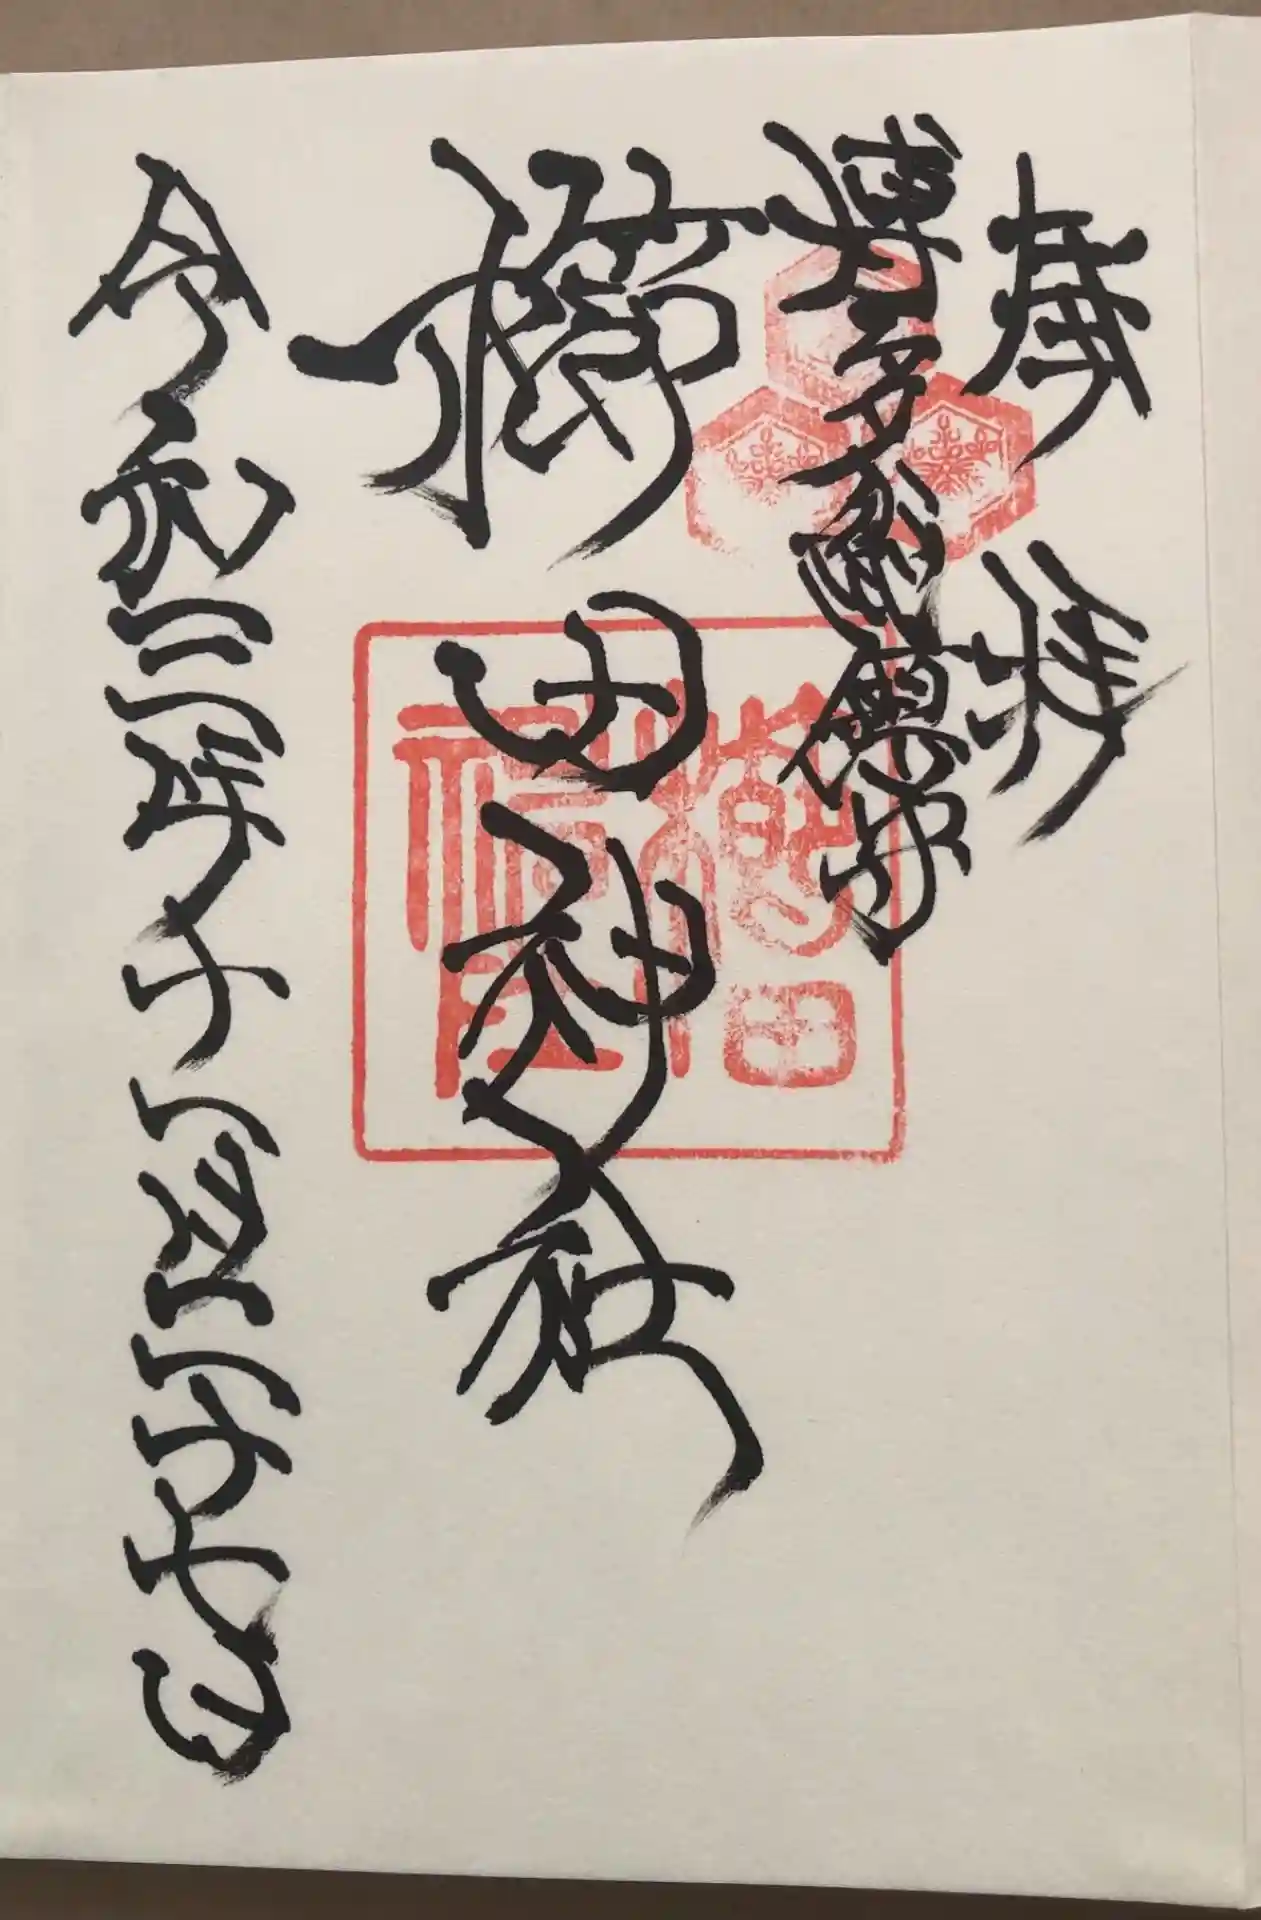 奉拝
博多總鎮守
櫛田神社
令和三年十一月二十七日